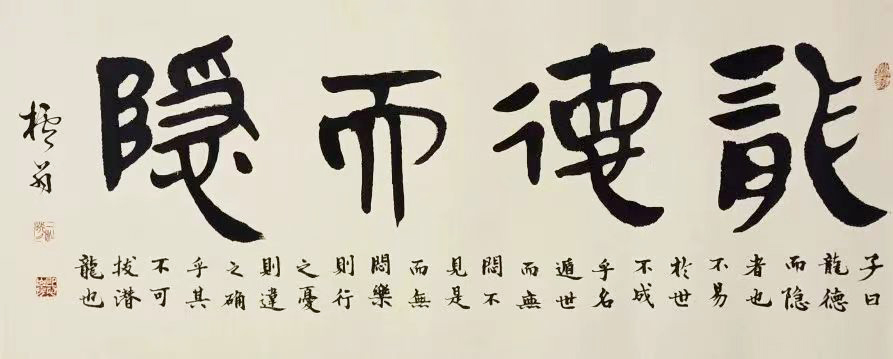 龍德而隐
子曰
龍德
而隐
者也
不易
於世
不成
乎名
遁世
而無
悶不
見是
而無
悶樂
則行
之憂
則違
之确
乎其
不可
拔潜
龍也
翁